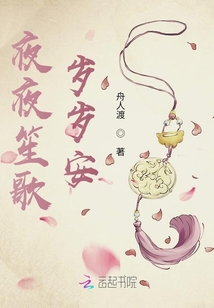 夜夜笙歌
岁岁安
舟人渡 ◎ 著
云起书院